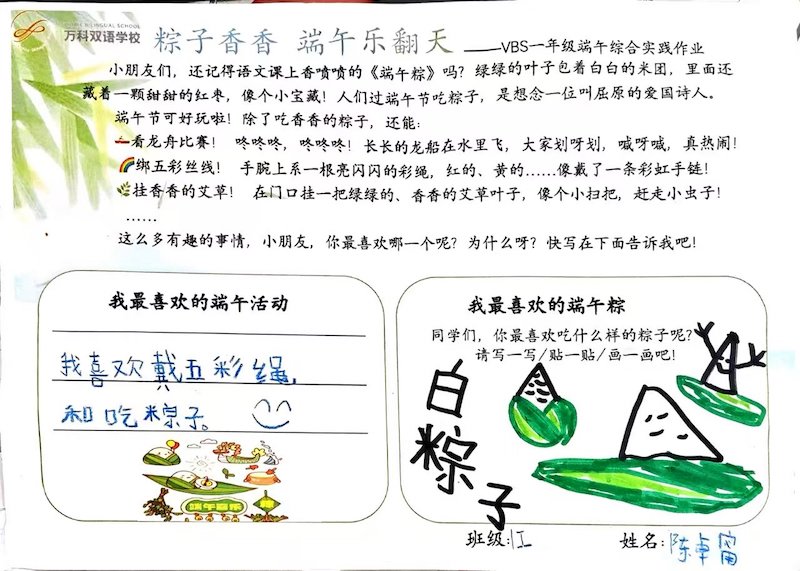 万科双语学校
粽子香香 端午乐翻天 ——VBS一年级端午综合实践作业
小朋友们，还记得语文课上香喷喷的《端午粽》吗？绿绿的叶子包着白白的米团，里面还
藏着一颗甜甜的红枣，像个小宝藏！人们过端午节吃粽子，是想念一位叫屈原的爱国诗人。
端午节可好玩啦！除了吃香香的粽子，还能：
看龙舟比赛！ 咚咚咚，咚咚咚！长长的龙船在水里飞，大家划呀划，喊呀喊，真热闹！
🌈绑五彩丝线！ 手腕上系一根亮闪闪的彩绳，红的、黄的……像戴了一条彩虹手链！
🌿挂香香的艾草！ 在门口挂一把绿绿的、香香的艾草叶子，像个小扫把，赶走小虫子！
……
这么多有趣的事情，小朋友，你最喜欢哪一个呢？为什么呀？快写在下面告诉我吧！
我最喜欢的端午活动
我喜欢戴五彩绳，
和吃粽子。
我最喜欢的端午粽
同学们，你最喜欢吃什么样的粽子呢？
请写一写/贴一贴/画一画吧！
白粽子
班级：
姓名：陈卓